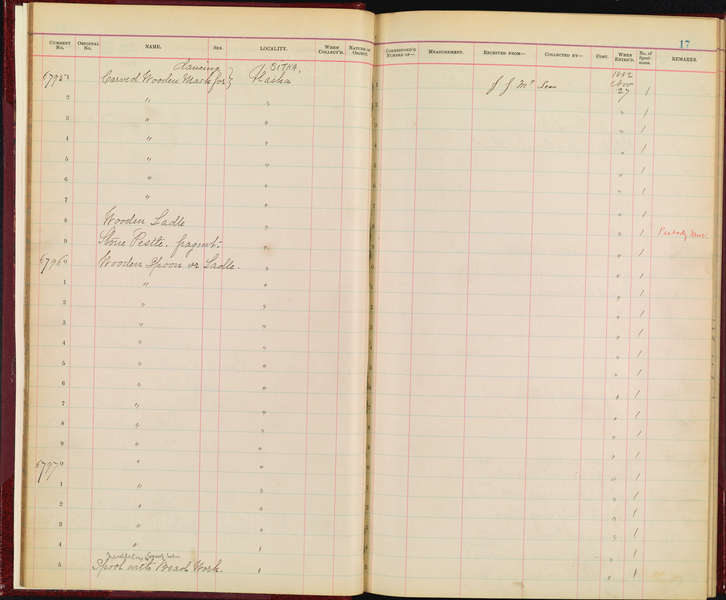 17
CURRENT NO. ORIGINAL NO. NAME. SEX. LOCALITY. WHEN COLLECT'D. NATURE OF OBJECT. CORRESPOND'G NUMBER OF— MEASUREMENT. RECEIVED FROM— COLLECTED BY— COST. WHEN ENTER'D. No. of Speci-mens. REMARKS.
dancing SITKA, 1882
67951 Carved Wooden Mask for} Alaska 1 J J McLean Nov 27 1
2 " " " 1
3 " " " 1
4 " " " 1
5 " " " 1
6 " " " 1
7 " " " 1
8 Wooden Ladle " " 1 Peabody Mus.
9 Stone Pestle. fragmt. " " 1
67960 Wooden Spoon or Ladle. " " 1
1 " " " 1
2 " " " 1
3 " " " 1
4 " " " 1
5 " " " 1
6 " " " 1
7 " " " 1
8 " " " 1
9 " " " 1
67970 " " " 1
1 " " " 1
2 " " " 1
3 " " " 1
4 " " " 1
5 Spoon with Bead Work. " " 1